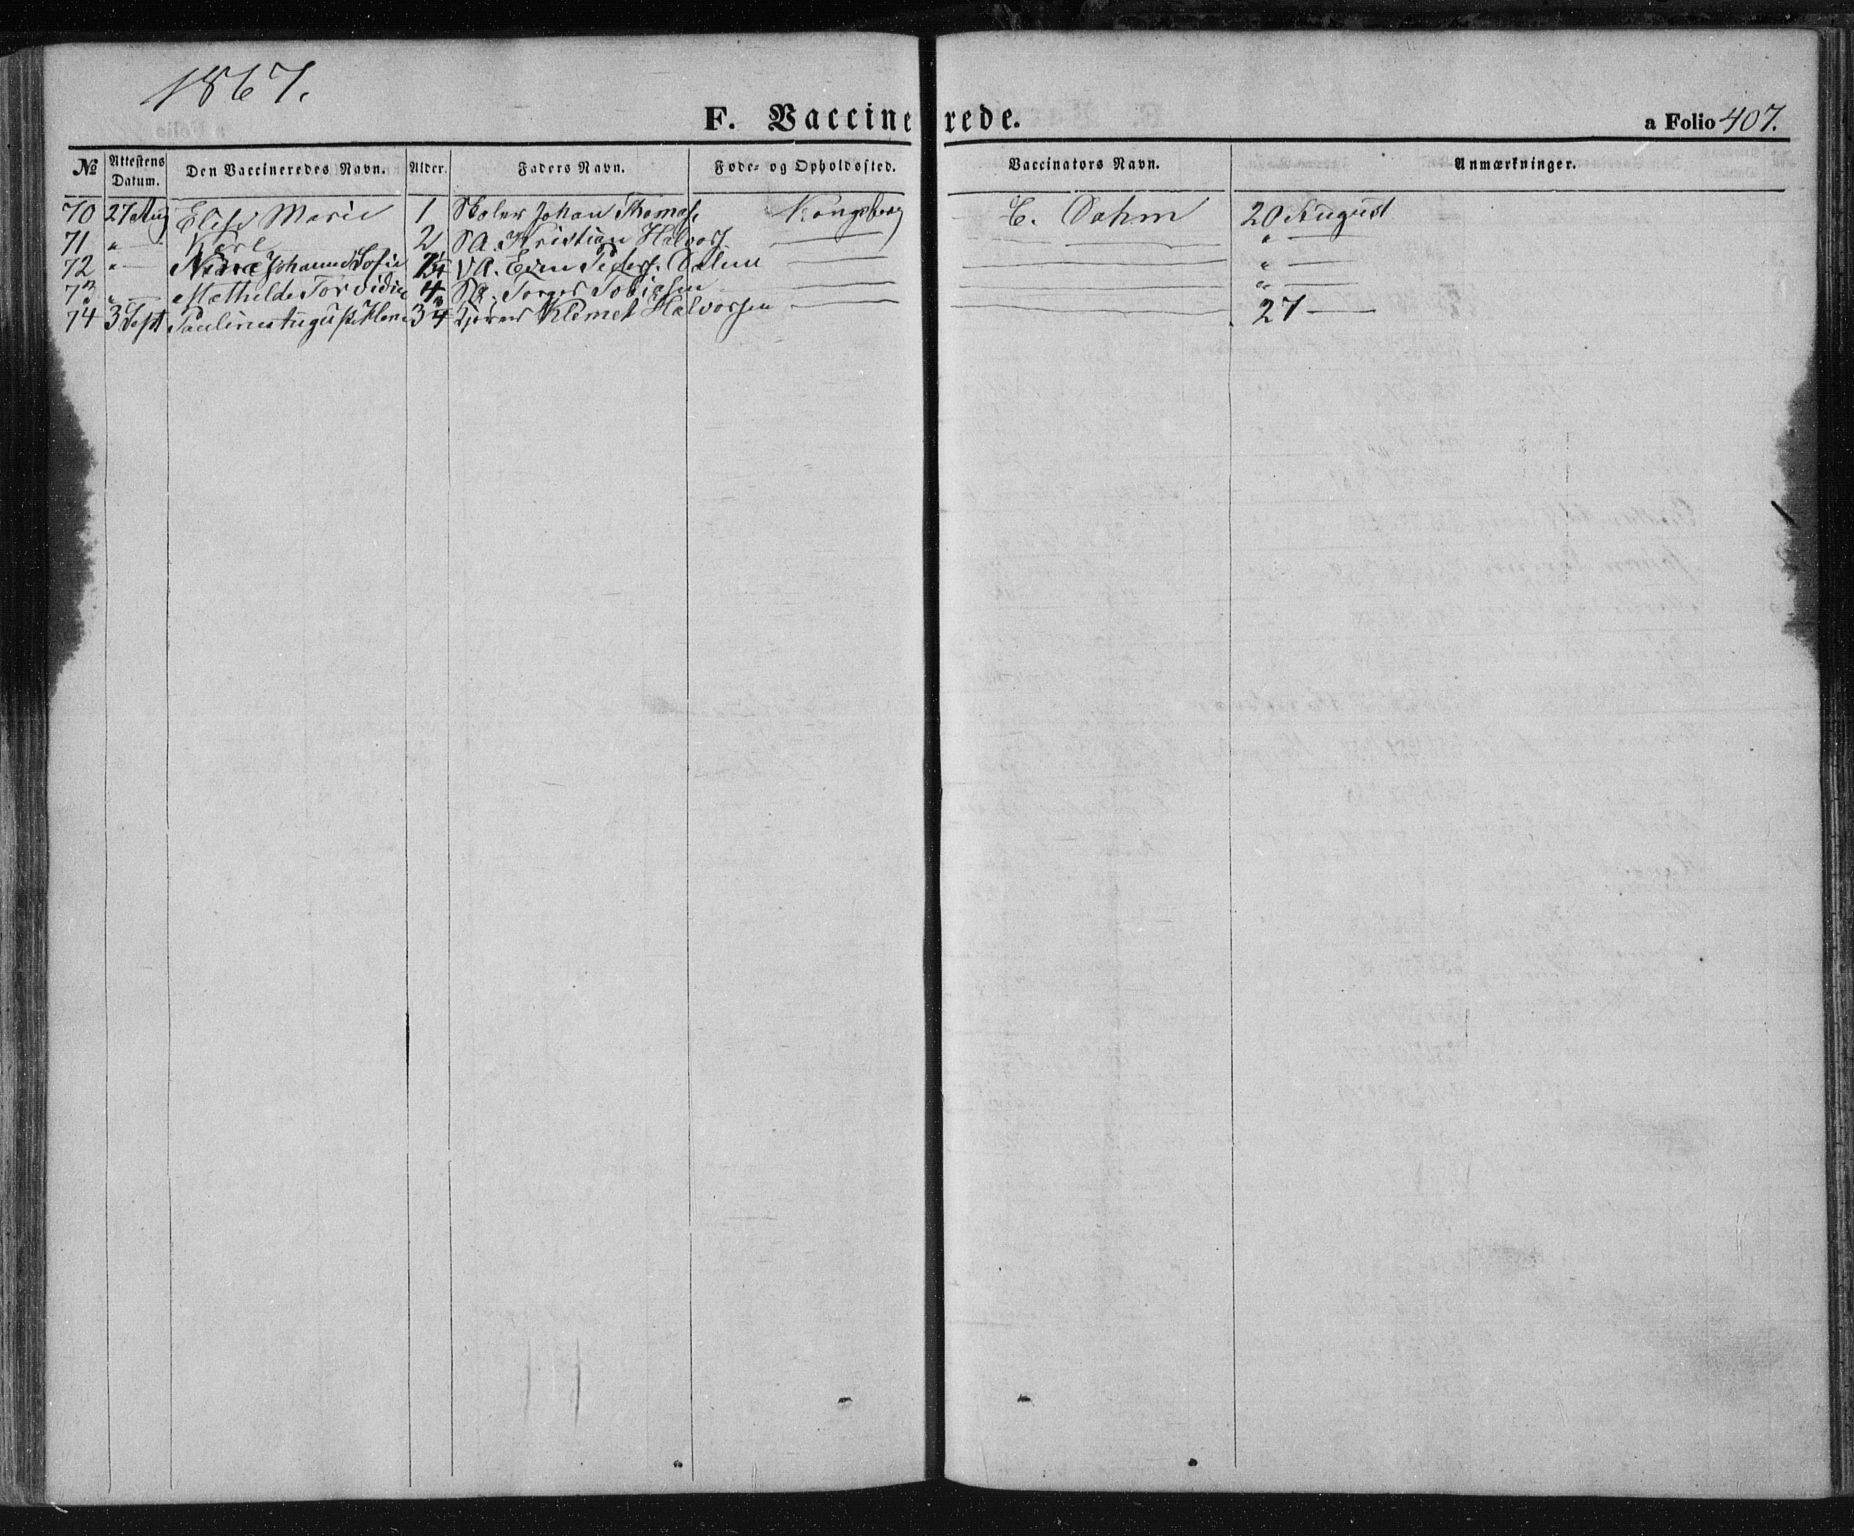 1867.
F. Vaccinerede.
a Folio 407.
No Attestens Datum. Den Vaccineredes Navn. Alder. Faders Navn. Føde- og Opholdssted. Vaccinators Navn. Anmærkninger.
70 27 Aug Elise Marie 1 Johan Thomas Kongsberg C. Dahm 20 August
71 " — Karl 2 SA. Kristian Halvors — — " —
72 " — Johanne Sofie A. Even Peders. — — " —
73 " — Mathilde 4 SA. Torger Tobiasen — — " —
74 3 Sept Pauline August 3/4 Klemet Halvorsen — — 27 —